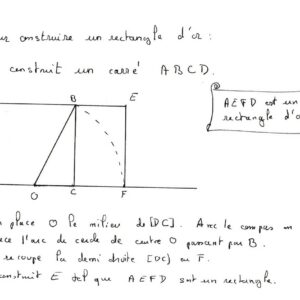 ur construire un rectangle d'or :
construit un carré ABCD.
B
E
AEFD est un
rectangle d'o
O
C
F
place O le milieu de [DC]. Avec le compas on
l'arc de cercle de centre O passant par B.
recoupe la demi droite [DC) en F.
construit E tel que AEFD soit un rectangle.